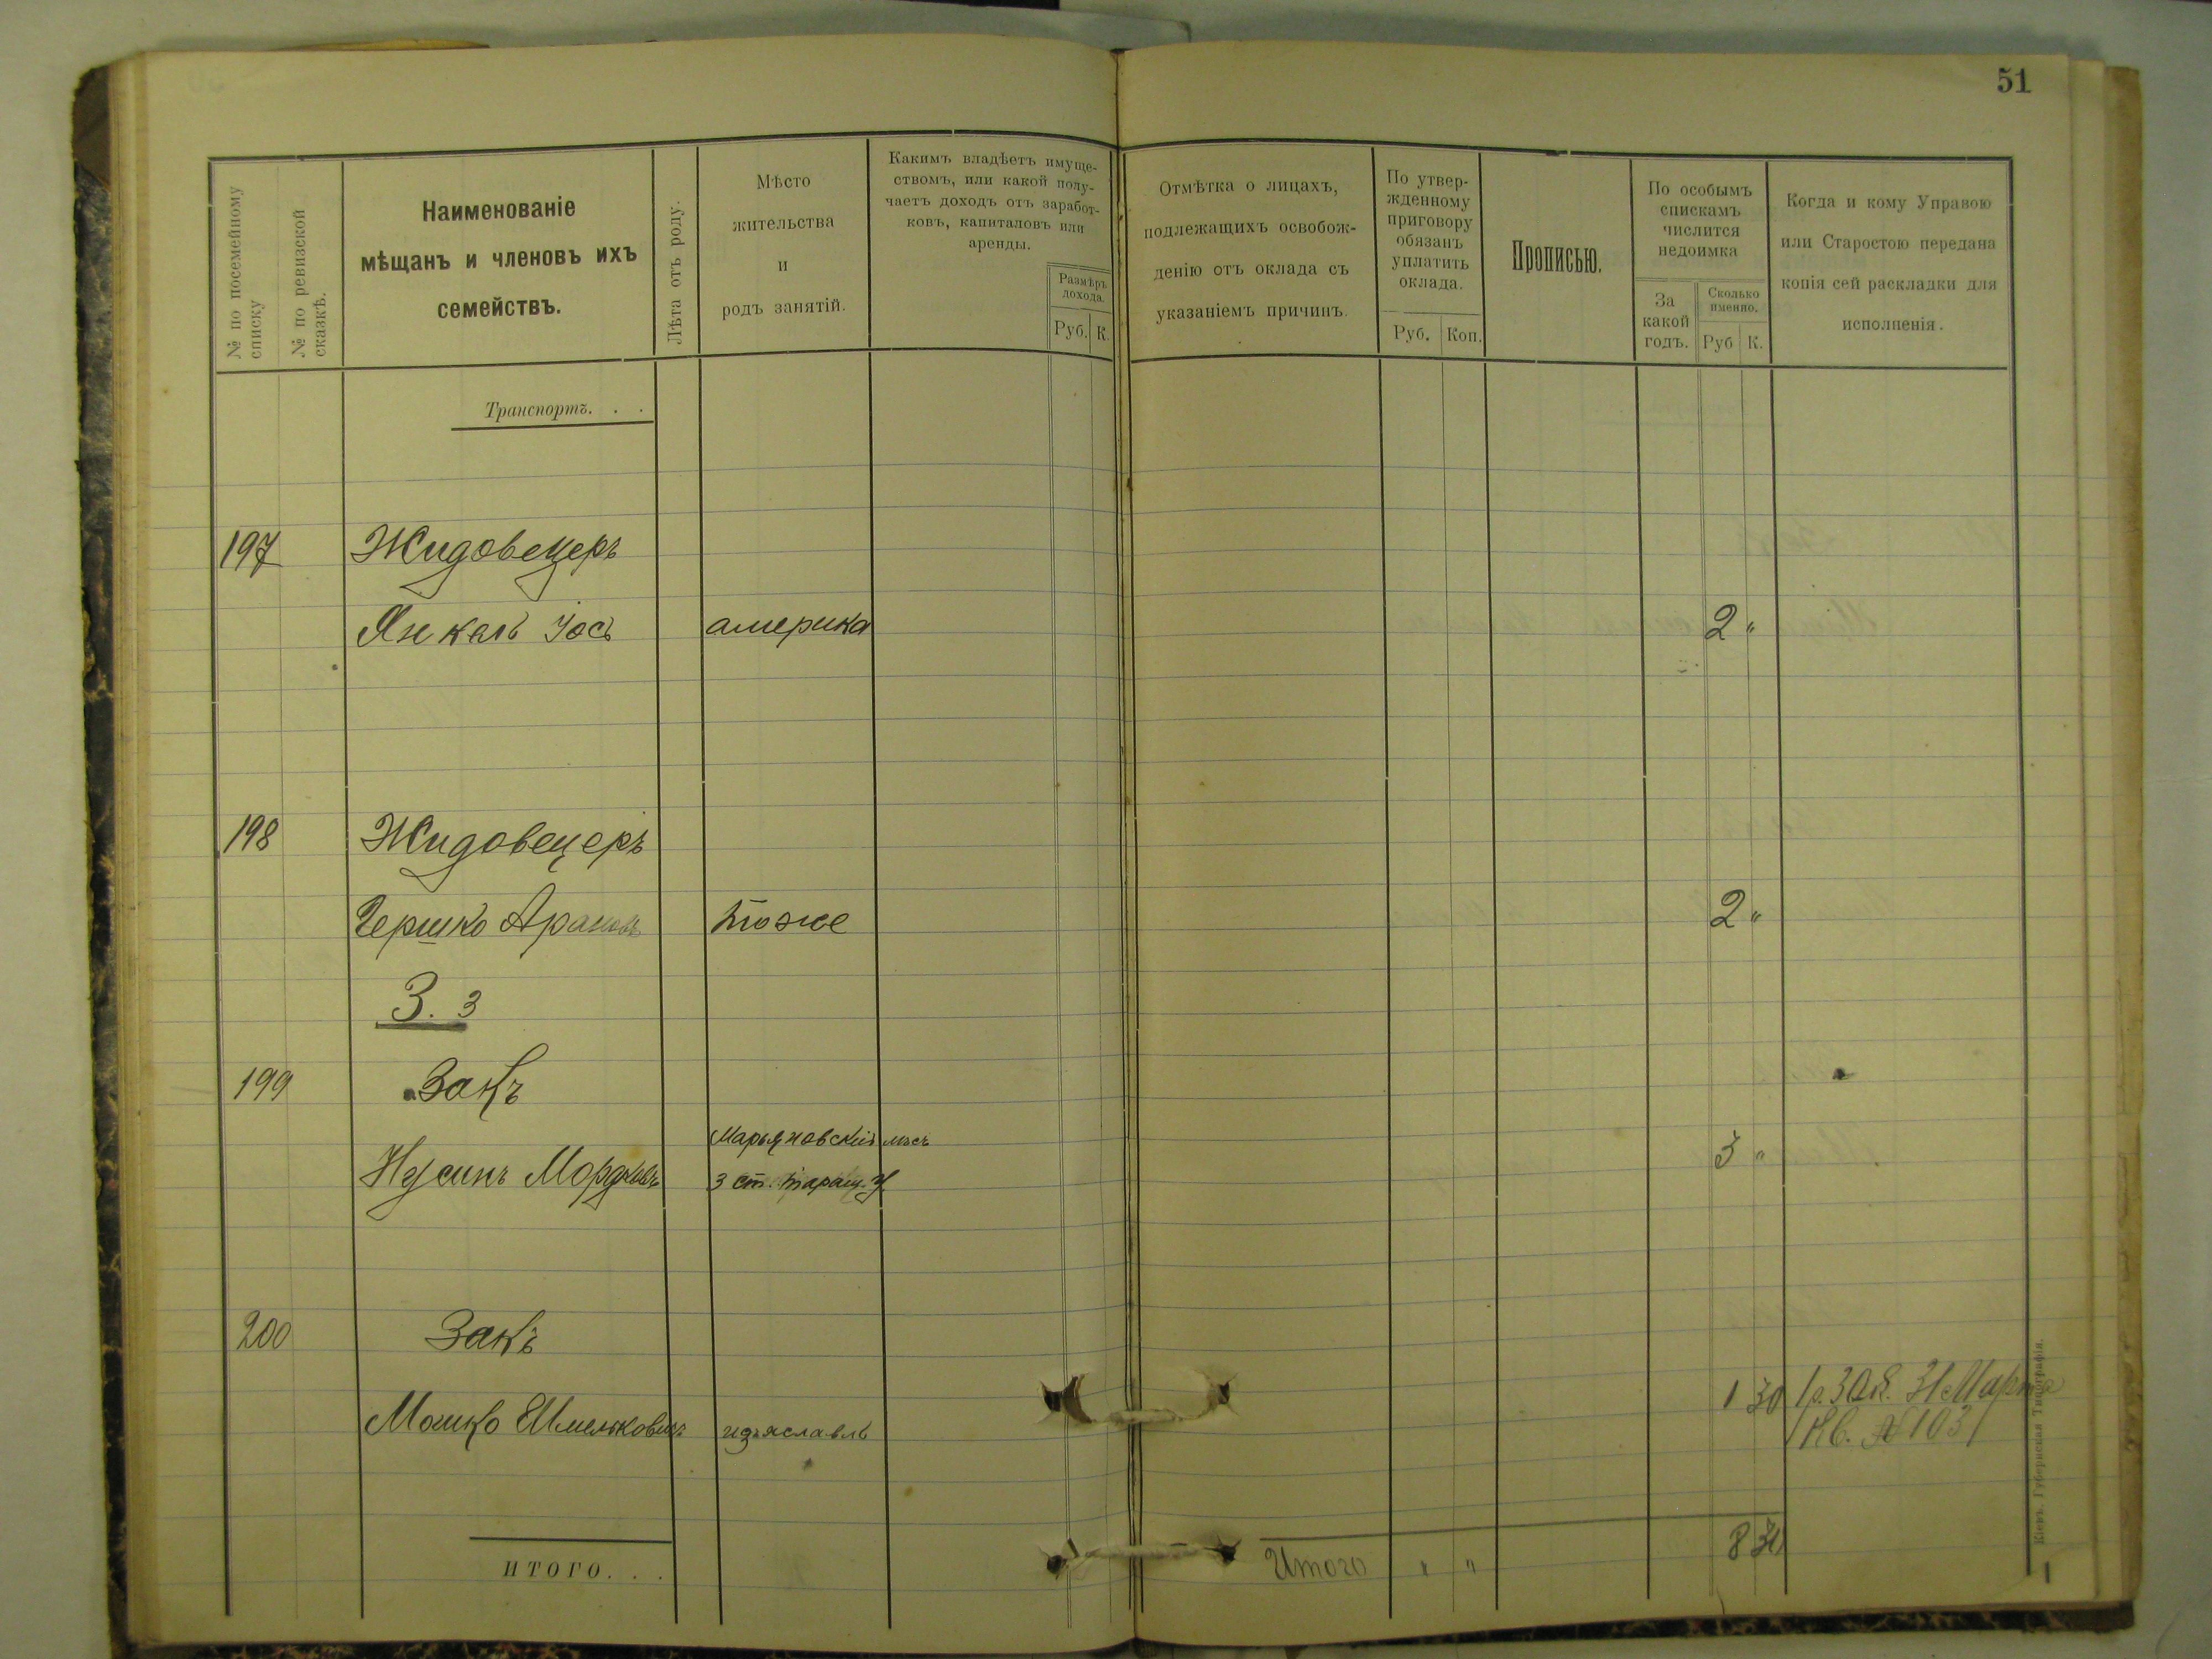 51
№ по посемейному списку
№ по ревизской сказкѣ.
Наименованіе
мѣщанъ и членовъ ихъ
семействъ.
Лѣта отъ роду.
Мѣсто
жительства
и
родъ занятій.
Какимъ владѣетъ имуще-
ствомъ, или какой полу-
чаетъ доходъ отъ заработ-
ковъ, капиталовъ или
аренды.
Размѣръ
дохода.
Руб. К.
Отмѣтка о лицахъ,
подлежащихъ освобож-
денію отъ оклада съ
указаніемъ причинъ.
По утвер-
жденному
приговору
обязанъ
уплатить
оклада.
Руб. Коп.
Прописью.
По особымъ
спискамъ
числится
недоимка
За
какой
годъ.
Сколько
именно.
Руб К.
Когда и кому Управою
или Старостою передана
копія сей раскладки для
исполненія.
Транспортъ. . .
197 Жидовецеръ
Янкель Іось америка 2 "
198 Жидовецеръ
Гершко тоже 2 "
З. з
199 Закъ
Нусинъ Мордковъ 3 "
3 ст. таращ. у
200 Закъ
Мошко изяславль 1 30 1 р. 30 к. 31 Марта
Кв. № 103
ИТОГО. . . Итого " " 8 30
Кіевъ. Губернская Типографія.